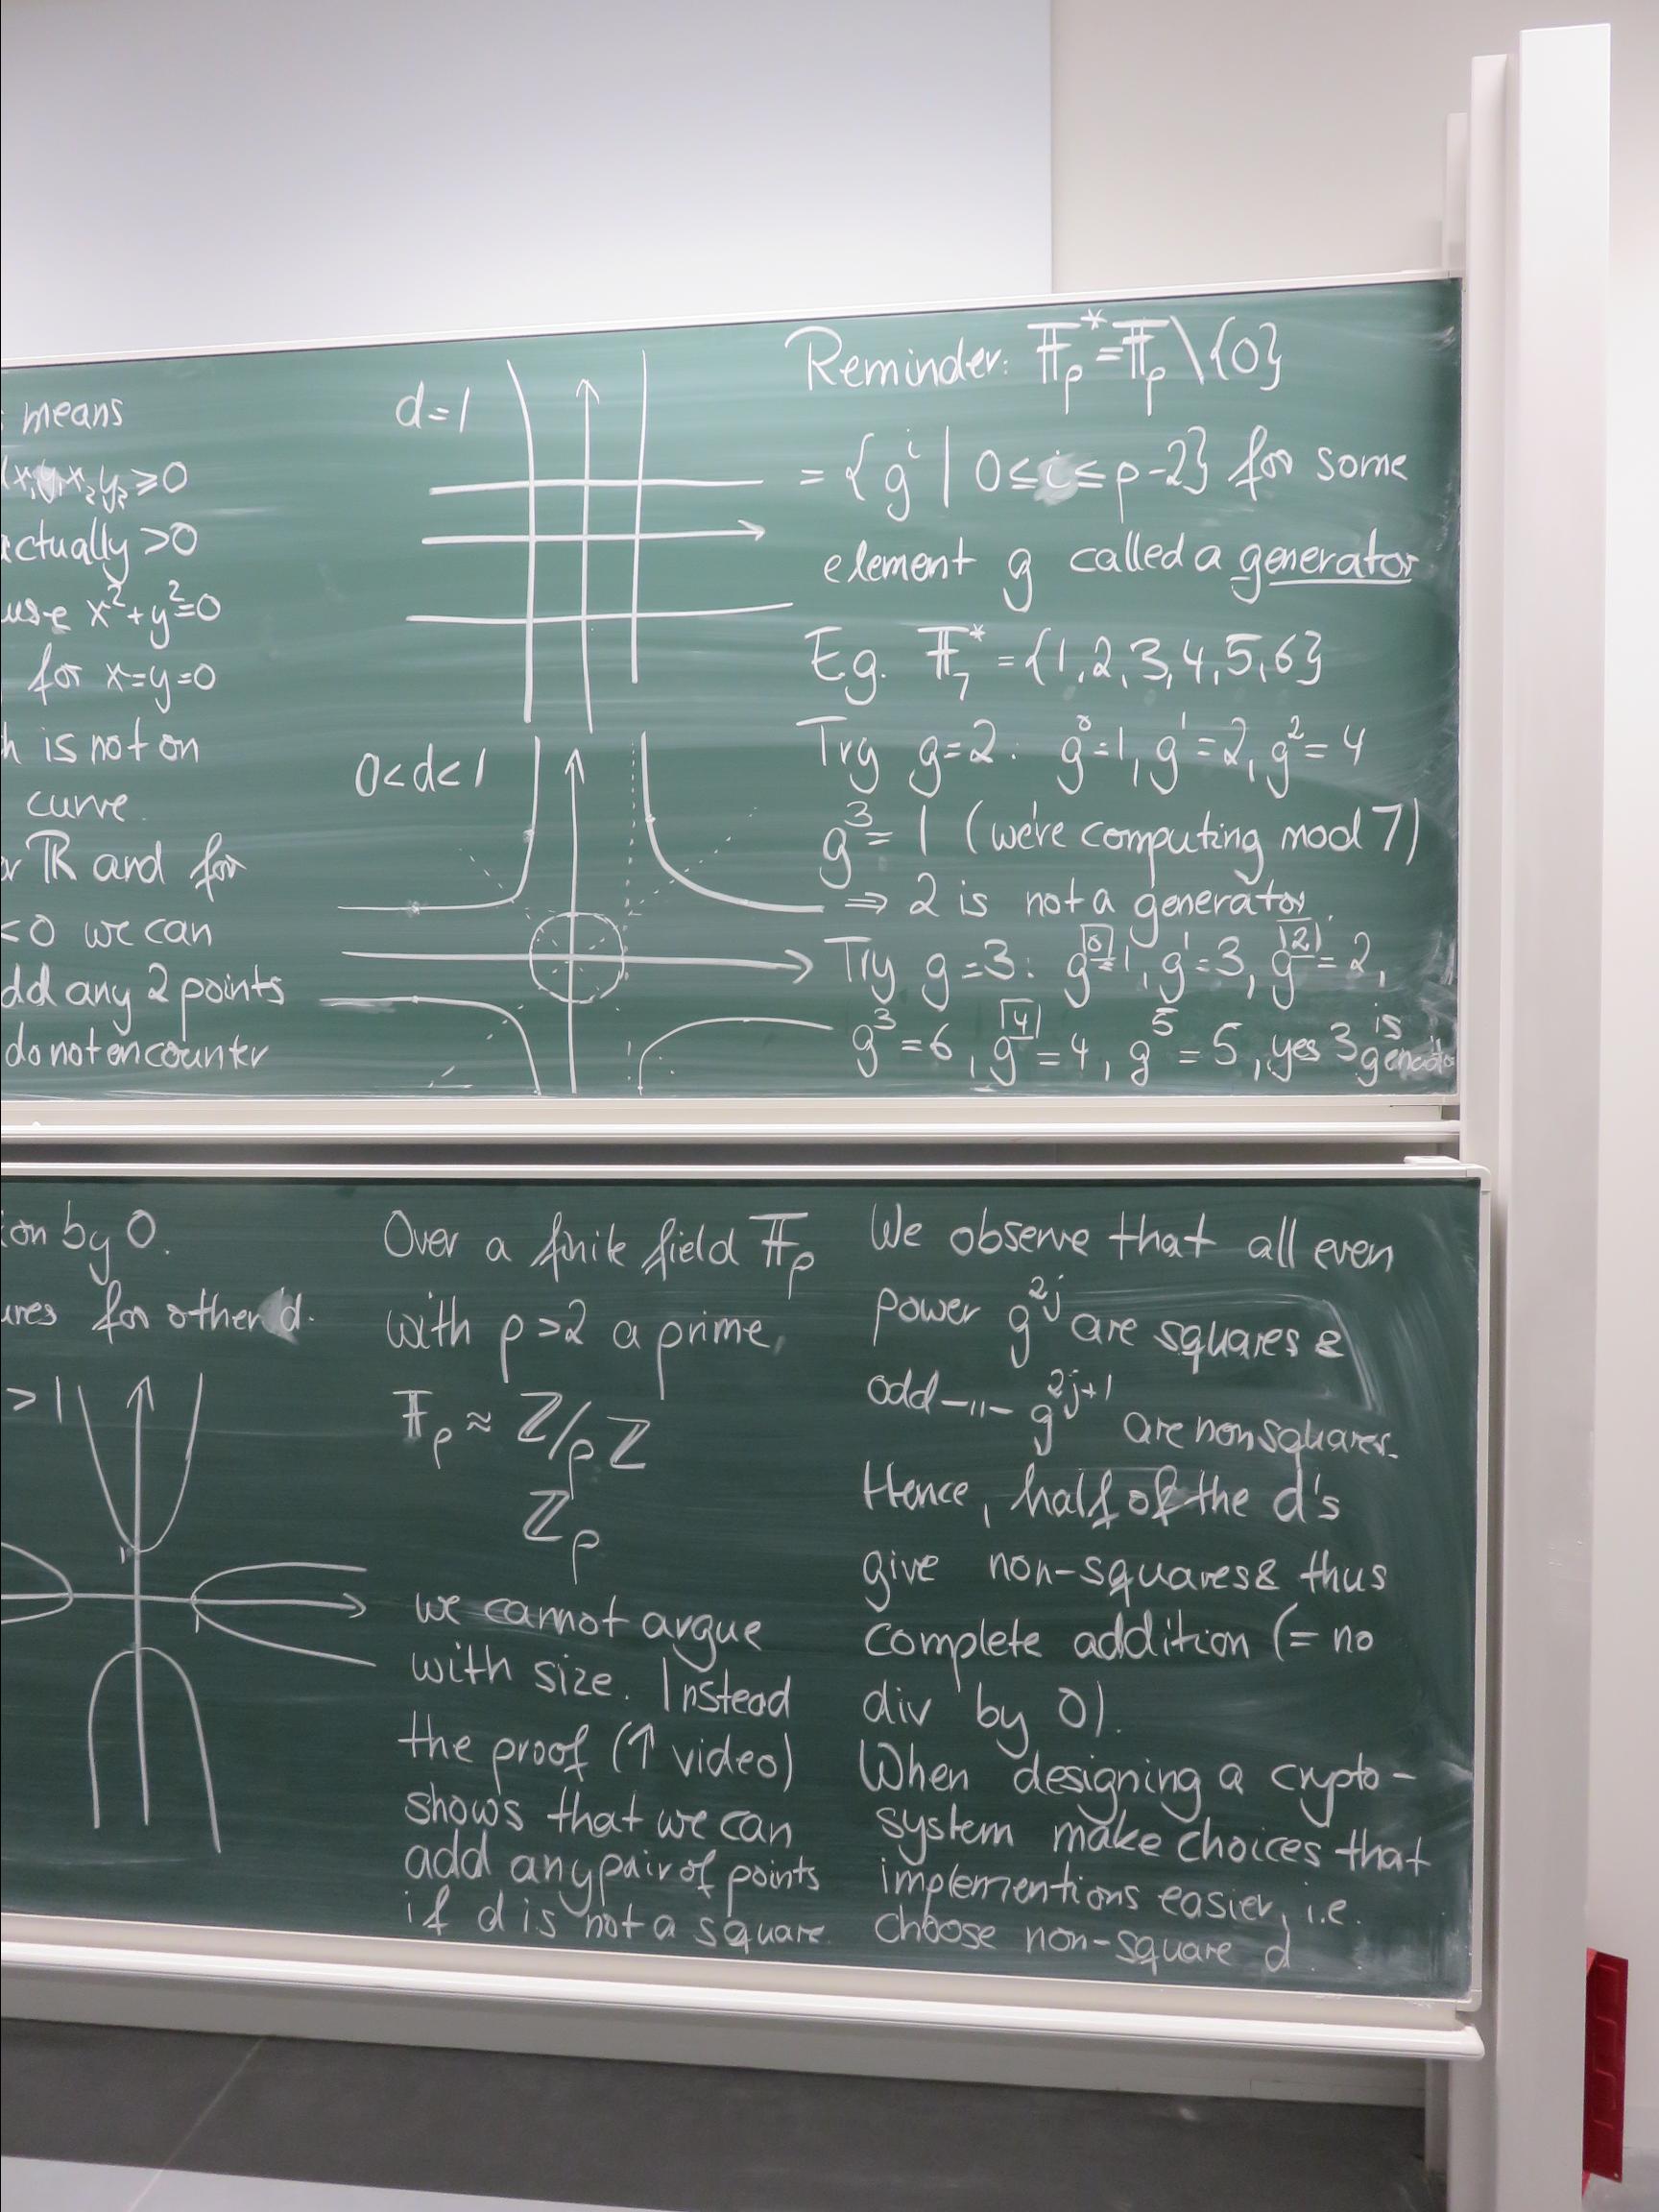 means
x₁y₁x₂y₂ ≥0
actually >0
use x²+y²=0
for x=y=0
is not on
curve.
ℝ and for
<0 we can
add any 2 points
do not encounter
d=1
0<d<1
Reminder: 𝔽ₚ* = 𝔽ₚ \ {0}
= {gⁱ | 0≤i≤p-2} for some
element g called a generator
Eg. 𝔽₇* = {1,2,3,4,5,6}
Try g=2: g⁰=1, g¹=2, g²=4
g³=1 (we're computing mod 7)
⇒ 2 is not a generator.
Try g=3: g⁰=1, g¹=3, g²=2,
g³=6, g⁴=4, g⁵=5, yes 3 is
generator
ion by 0.
ures for other d.
>1
1
1
Over a finite field 𝔽ₚ
with p>2 a prime,
𝔽ₚ ≈ ℤ/pℤ
ℤₚ
we cannot argue
with size. Instead
the proof (↑ video)
shows that we can
add any pair of points
if d is not a square.
We observe that all even
power g^{2j} are squares &
odd -"- g^{2j+1} are nonsquares.
Hence, half of the d's
give non-squares & thus
complete addition (= no
div by 0).
When designing a crypto-
system make choices that
implementions easier, i.e.
choose non-square d.